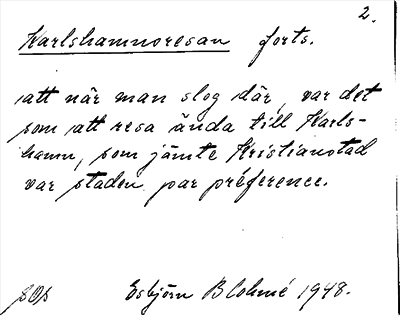 2.
Karlshamnsresan forts.
att när man slog där, var det
som att resa ända till Karls-
hamn, som jämte Kristianstad
var staden par préférence.
Esbjörn Blohmé 1948.